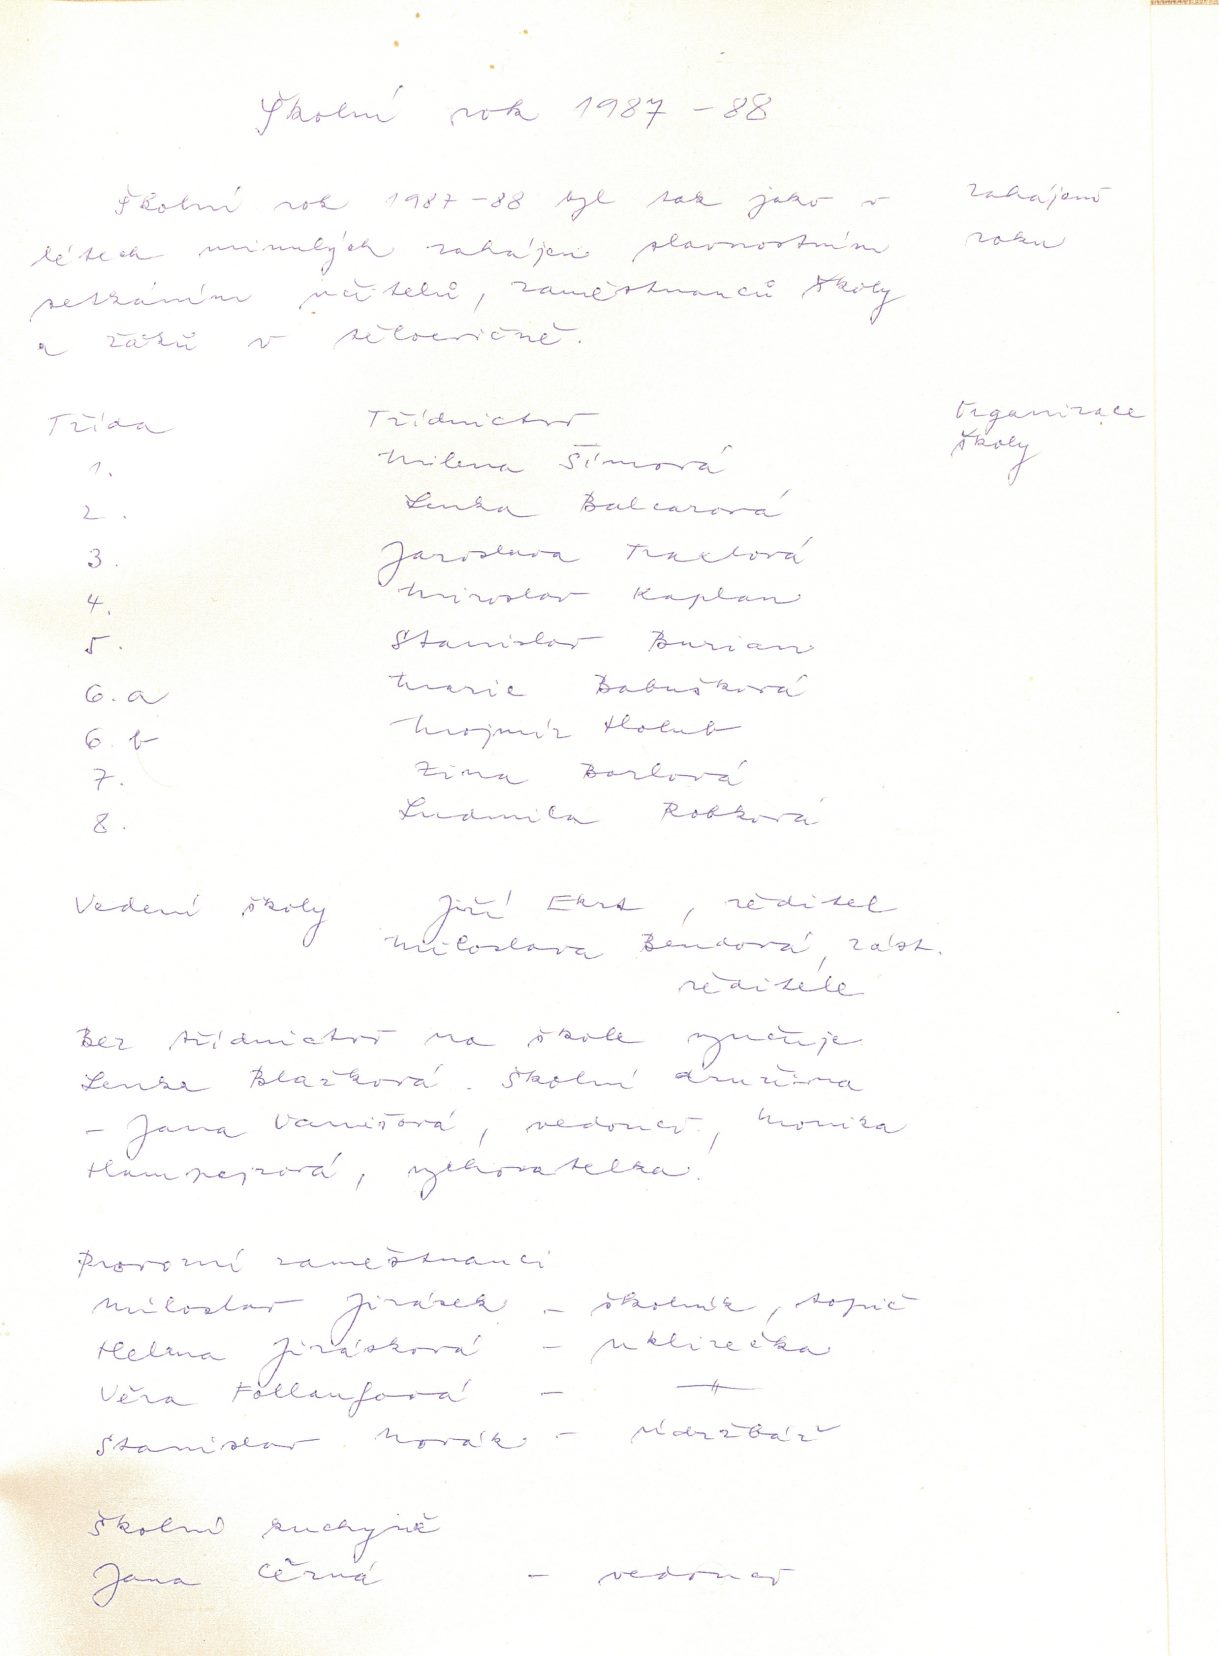 Školní rok 1987-88
Školní rok 1987-88 byl tak jako v
létech minulých zahájen slavnostním
setkáním učitelů, zaměstnanců školy
a žáků v tělocvičně.
zahájení
roku
Třída Třídnictví
1. Milena Šímová
2. Lenka Balcarová
3. Jaroslava Traxlová
4. Miroslav Kaplan
5. Stanislav Burian
6. a Marie Babušková
6. b Mojmír Holub
7. Zina Bartová
8. Ludmila Robková
Organizace
školy
Vedení školy Jiří Ekrt, ředitel
Miloslava Bendová, zást.
ředitele
Bez třídnictví na škole vyučuje
Lenka Blažková. Školní družina
- Jana Vanišová, vedoucí, Monika
Hampejzová, vychovatelka.
Provozní zaměstnanci
Miloslav Jirásek - školník, topič
Helena Jirásková - uklízečka
Věra - -"-
Stanislav Novák - údržbář
Školní kuchyně
Jana Černá - vedoucí